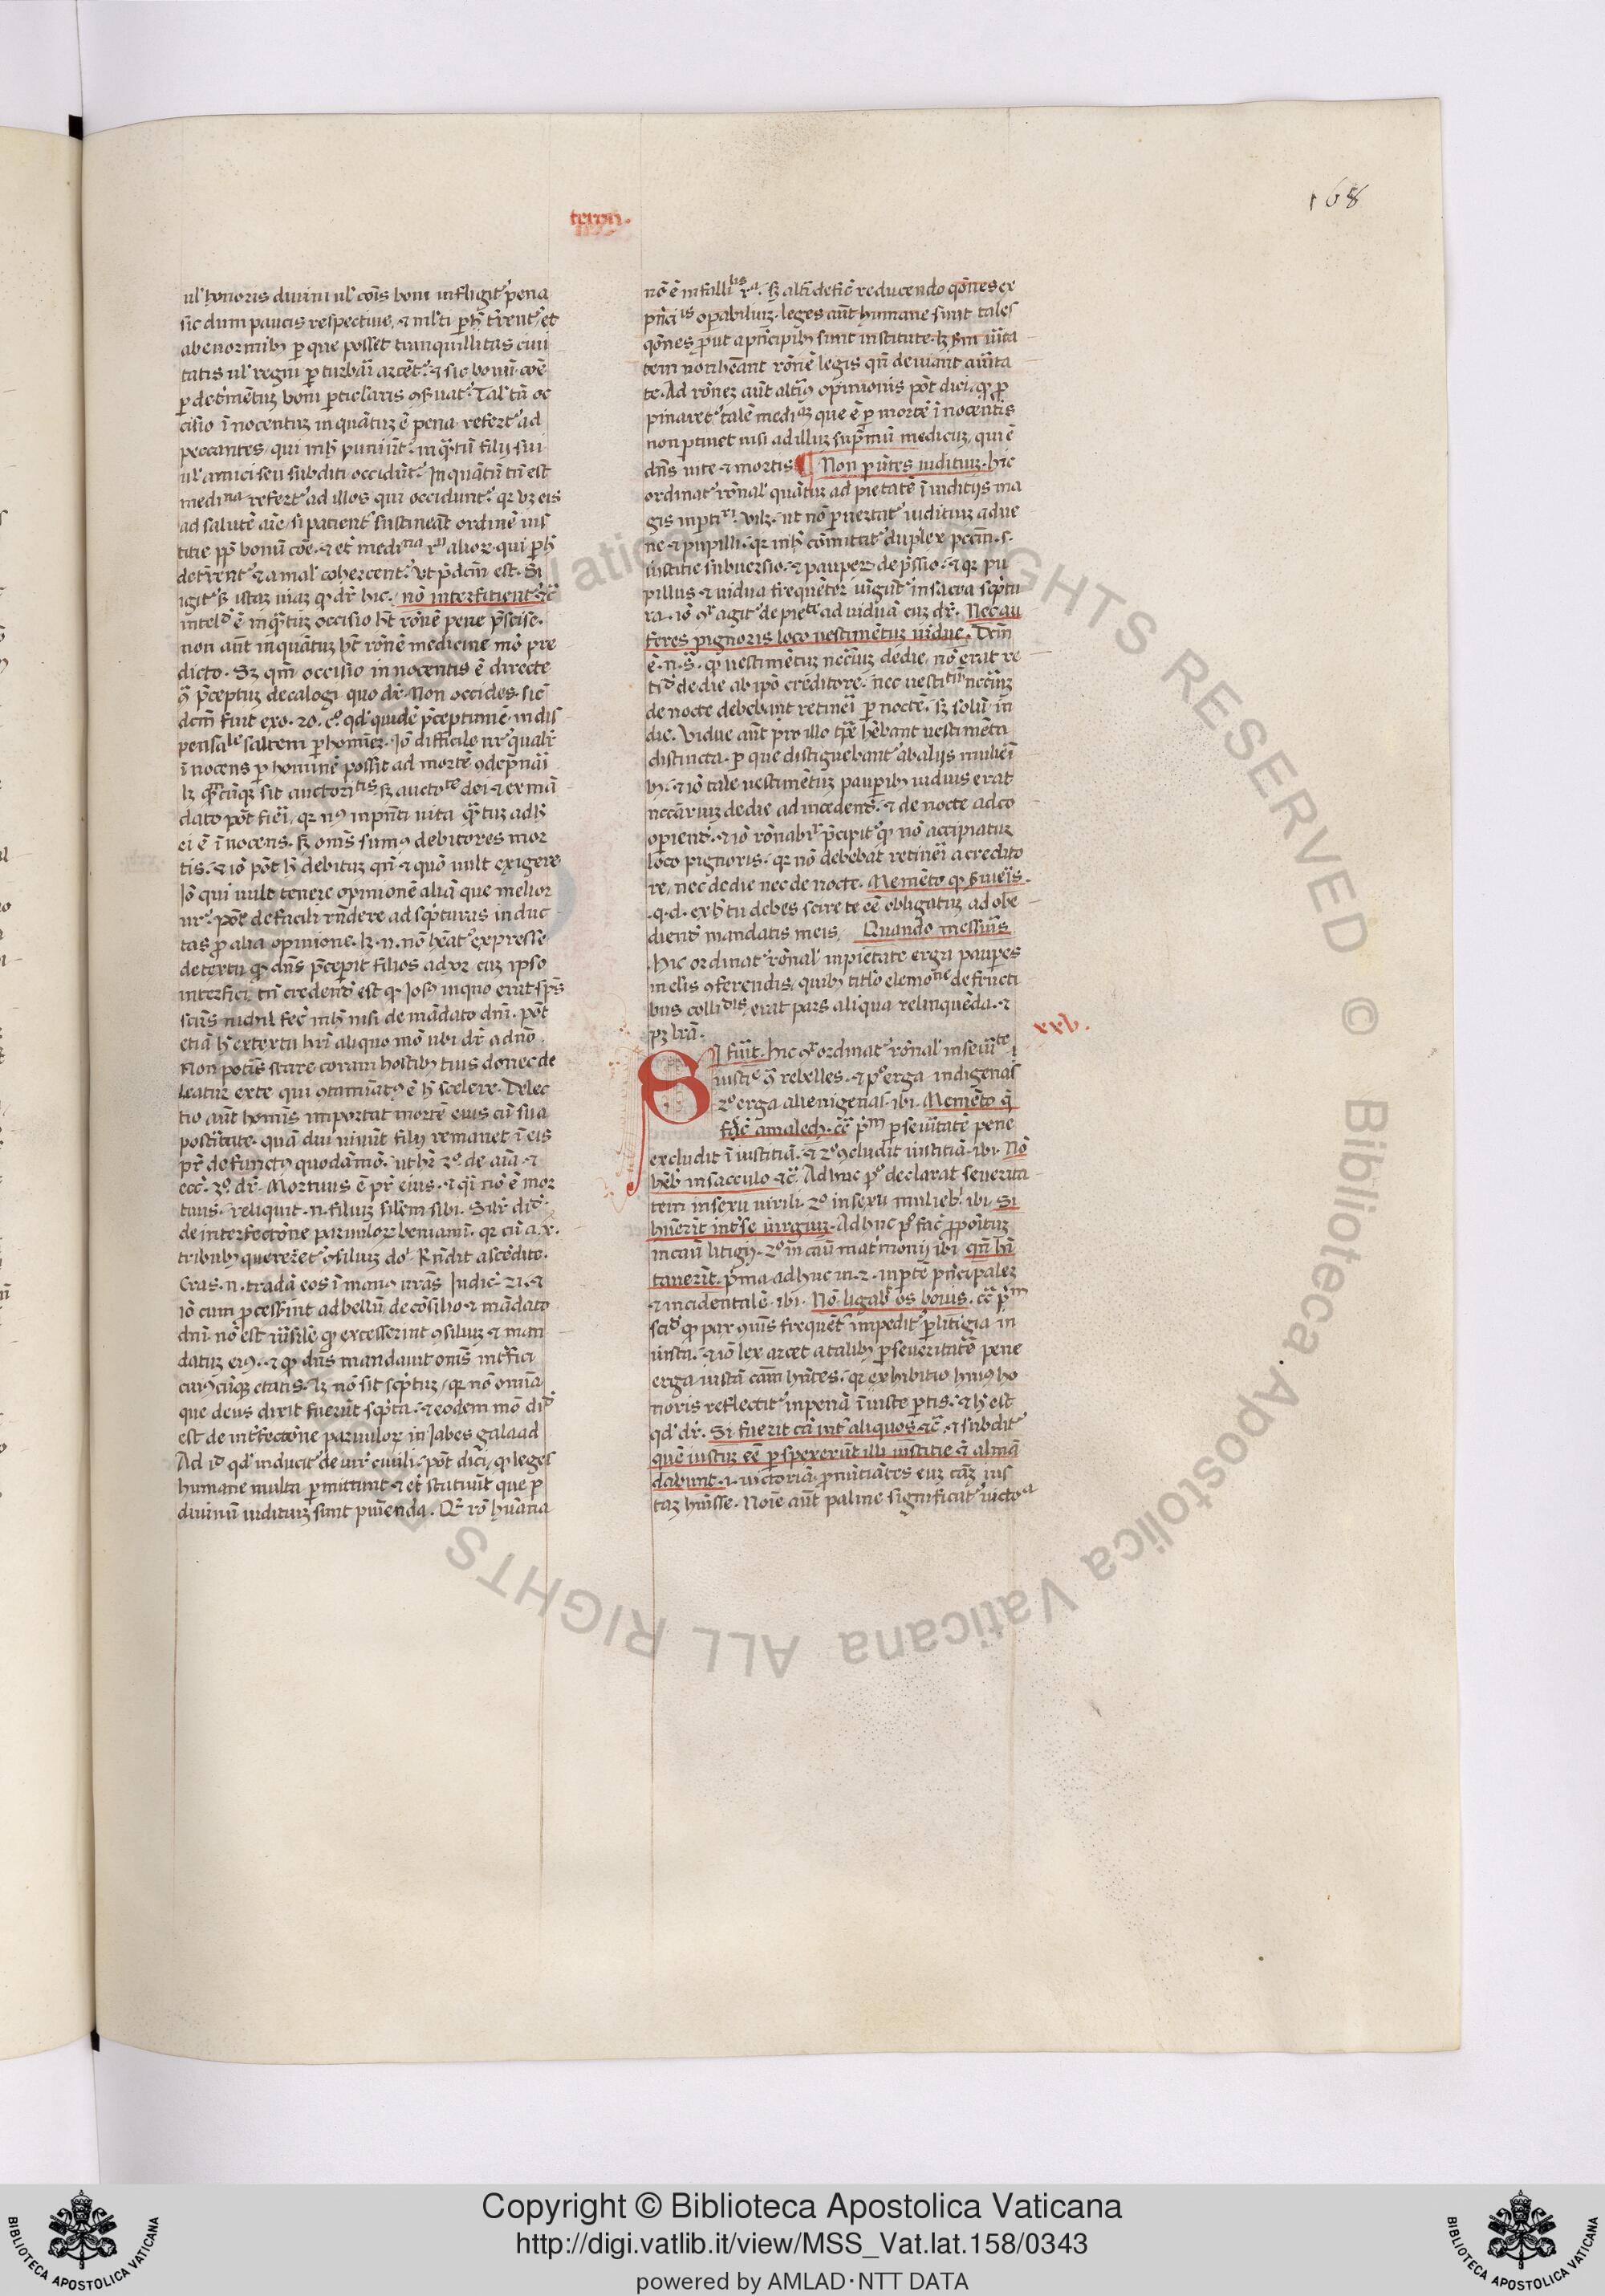 168
teron.
ul' honoris diuini ul' cōis boni infligit' pena
sic dum paucis respectiue, ⁊ ml'ti p̲ h' t'rent' et
ab enormib; p̲ que posset tranquillitas ciui
tatis ul' regni p̲turbari arcēt'. ⁊ sic bonū coē
p̲ detimētuz boni p̲ticlaris ꝯseruat'. Tal' tn̄ oc
cisio īnocentuz inquātuz ē pena refert' ad
peccantes, qui in h' puniūt'. inq̄tū filij sui
ul' amici seu subditi occidūt'. Inquātū tn̄ est
medina refert' ad illos qui occidunt'. qr uz eis
ad salutē aīe, si patient' sustineāt ordinē ius
titie pp̄ bonū coē. ⁊ et' medina rn̄ alior. qui p̲ h'
det'rent' ⁊ a mal' cohercent'. vt p̄dcm̄ est. Si
igit' s' istaz uiaz q dr̄ hic. nō interfitient' ⁊c̄
intel'd' ē inq̄tuz occisio h̄t rōnē pene p̄scise.
non aūt inquātuz h̄t rōnē medicine mō pre
dicto. Sz qm̄ occisio innocentis ē directe
ꝯ p̄ceptuz decalogi quo dr̄. Non occides. sic'
dcm̄ fuit exo. 20. c°. qd' quidē p̄ceptum ē indis
pensale saltem p̲ hominez. Iō difficile ur' qualr̄
īnocens p̲ hominē possit ad mortē ꝯdepnari
lz q̄ntcūq; sit auctoritis. sz auctote dei ⁊ ex mā
dato pōt fieri, qr n9 in pn̄ti uita q̄ntuz ad h'
ei ē īnocens. sz omēs sum9 debitores mor
tis. ⁊ iō pōt h' debituz qn̄ ⁊ quō uult exigere
Iō qui uult tenere opinionē aliā que melior
ur'. pōt de facili rn̄dere ad sc̄pturas induc
tas p̲ alia opinione. lz .n. nō hēat' expresse
de textu q dn̄s p̄cepit filios ad uz cuz ipso
interfici, tn̄ credend' est q Ios' in quo erat sp̄s
scūs nichil fec' in h' nisi de mādato dn̄i. pōt
etiā h' ex textu h̄ri aliquo mō ubi dr̄ a dn̄o.
Non potis stare coram hostib; tuis donec de
leatur ex te qui ꝯtamiat9 ē h' scelere. Delec
tio aūt homis importat mortē eius cū sua
post'itate. quā diu uiuūt filij remanet ī eis
pr̄ defunct9 quodāmō. ut h̄r 2°. de aīa. ⁊
ecc'. 3°. dr̄. Mortuus ē pr̄ eius. ⁊ q̄i nō ē mor
tuus. reliquit .n. filiuz silem sibi. Silr̄ did'
de interfectōne paruulor beniamī. qr cū a. x.
tribub; quereret' ꝯsiluz do'. Rn̄dit ascēdite.
Cras .n. tradā eos ī man9 ur̄as Iudic' 21. ⁊
iō cum p̲cessint ad bellū de cōsilio ⁊ mādato
dn̄i. nō est uisilē q excesserint ꝯsiluz ⁊ man
datuz ei9. ⁊ q dn̄s mandauit om̄s int'fici
cui9cūq; etatis. lz nō sit sc̄ptuz, qr nō omīa
que deus dixit fuerūt sc̄pta. ⁊ eodem mō did'
est de int'fectōne paruulor in Iabes galaad
Ad id qd' inducit' de iur' ciuili. pōt dici, q leges
humane multa p̲mittunt ⁊ et' statuūt que p̲
diuinū iudituz sunt puīenda. Qr rō hūana
nō ē infallilis ra. sz alt'i defic' reducendo qōnes ex
pn̄ciis op̲abiliuz. leges aūt humane sunt tales
qōnes prout a pn̄cipib; sunt institute. lz sm̄ uita
tem non hēant rōnē legis qn̄ deuiant a uita
te. Ad rōnez aūt alt'i9 opinionis pōt dici, q p̲
pinaret' talē medinaz que ē p̲ mortē īnocentis
non ptinet nisi ad illuz sup̄mū medicuz, qui ē
dn̄s uite ⁊ mortis ¶ Non p̲u'tes iudituz. hic
ordinat' rōnal' quātuz ad pietatē ī iuditijs ma
gis in p̲ti'. Vlz. ut nō p̲uertat' iudituz adue
ne ⁊ pupilli. qr in h' cōmittit' duplex pccm̄. s.
iustitie subuersio. ⁊ pauper dep̄ssio. ⁊ qr pu
pillus ⁊ uidua frequēter iūgūt' in sacra sc̄ptu
ra. iō ꝯr agit' de piete ad viduā cuz dr̄. Nec au
feres pignoris loco uestimētuz uidue. Dcm̄
ē .n. s'. q uestimētuz nec̄iuz de die, nō erat re
tid' de die ab ipō creditore. nec uestituz nec̄iuz
de nocte debebant retineri p̲ nocte. sz solū in
die. Vidue aūt pro illo tp̄re hēbant uestimēta
distincta. p̲ que distiguebant' ab alijs mulieri
b;. ⁊ iō tale uestimētuz paup̲ib; uiduis erat
necc̄ariuz de die ad incedend'. ⁊ de nocte ad co
op̲iend'. ⁊ iō rōnabr̄ p̄cipit' q nō accipiatur
loco pignoris. qr nō debebat retineri a credito
re, nec de die nec de nocte. Memēto q s'uieris.
.q.d. ex h' tu debes scire te eē obligatuz ad obe
diend' mandatis meis. Quando messuis
hic ordinat' rōnal' in pietate erga paup̲es
in el'is ꝯferendis, quib; titlo elemone de fructi
bus collidis, erat pars aliqua relinquēda. ⁊
pz lr̄a.
xxv.
SI fuīt. hic ꝯr ordinat' rōnal' in seuite i
iustie ꝯ rebelles. ⁊ p° erga indigenas
2° erga alienigenas. ibi. Memēto q̄
fec' amalech. cē pm p̲ seuītatē pene
excludit ī iustitiā. ⁊ 2° ꝯcludit iustitiā. ibi. Nō
hēb' in sacculo ⁊c'. Adhuc p° declarat seuerita
tem in sexu uirili. 2° in sexu muliebī. ibi. Si
hūerīt int' se iurgiuz. Adhuc p° fac' p̲poītuz
in cau' litigij. 2° in cau' mat'monij ibi qn̄ h̄i
tauerīt. p̄ma adhuc in .2. in p̲tē pn̄cipalez
⁊ incidentalē. ibi. Nō ligab' os bouis. cē pm
scid' q pax ꝯuis frequēt' impedit' p̲ litigia in
iusta. ⁊ iō lex arcet a talib; p̲ seueritatē pene
erga iustā cam̄ hn̄tes. qr exhibitio hui9 ho
noris reflectit' in penā ī iuste p̲tis. ⁊ h' est
qd' dr̄. Si fuerit cā int' aliquos. ⁊c' ⁊ subdit'
quē iustuz eē p̲spexerūt illi iustitie ⁊ almā
dabunt. i. uictoriā p̲nūtiātes euz cāz ius
taz hūisse. Noīe aūt palme significat' uictoa
Copyright © Biblioteca Apostolica Vaticana
http://digi.vatlib.it/view/MSS_Vat.lat.158/0343
powered by AMLAD·NTT DATA